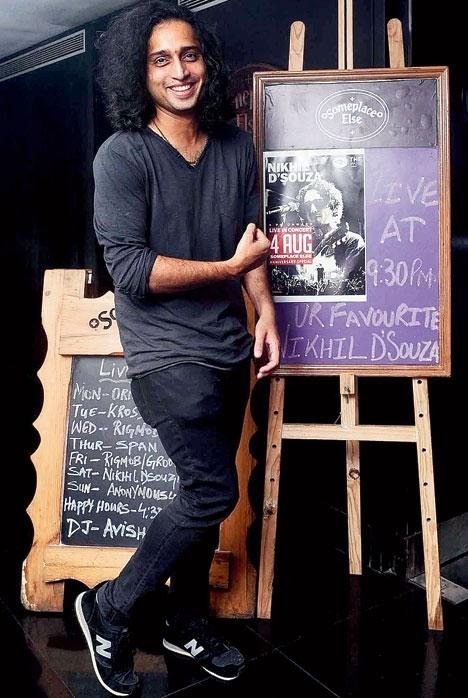 Someplace
Else
NIKHIL
D'SOUZA
LIVE IN CONCERT
4 AUG
SOMEPLACE ELSE
ANNIVERSARY SPECIAL
LIVE
AT
9:30 PM
UR FAVOURITE
NIKHIL D'SOUZA
Liv
MON-
TUE-KROS
WED--RIGMO
THUR-SPAN
FRI-RIGMOB/GROO
SAT-NIKHIL D'SOUZ
SUN-ANONYMOUSLY
HAPPY HOURS-4:3
DJ-AVISH
N
N